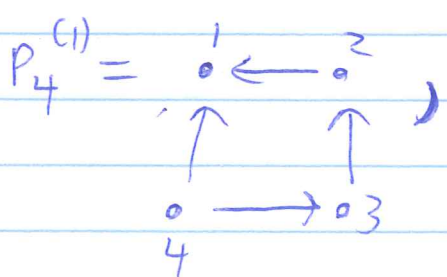 P₄⁽¹⁾ = 1 ← 2 ,
4 → 3